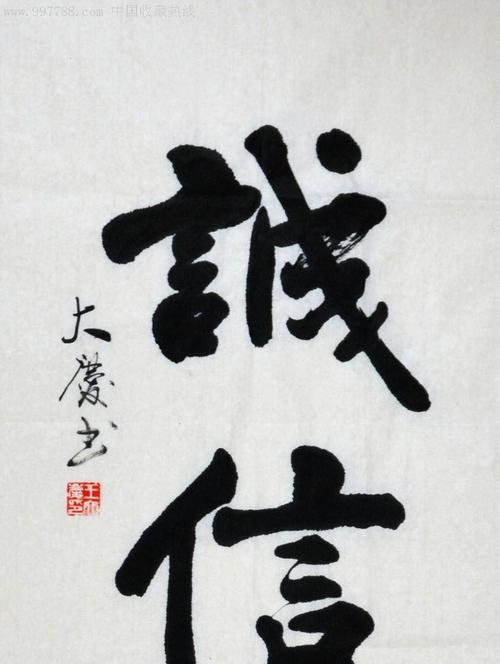 www.997788.com 中国收藏热线
誠信
大慶书